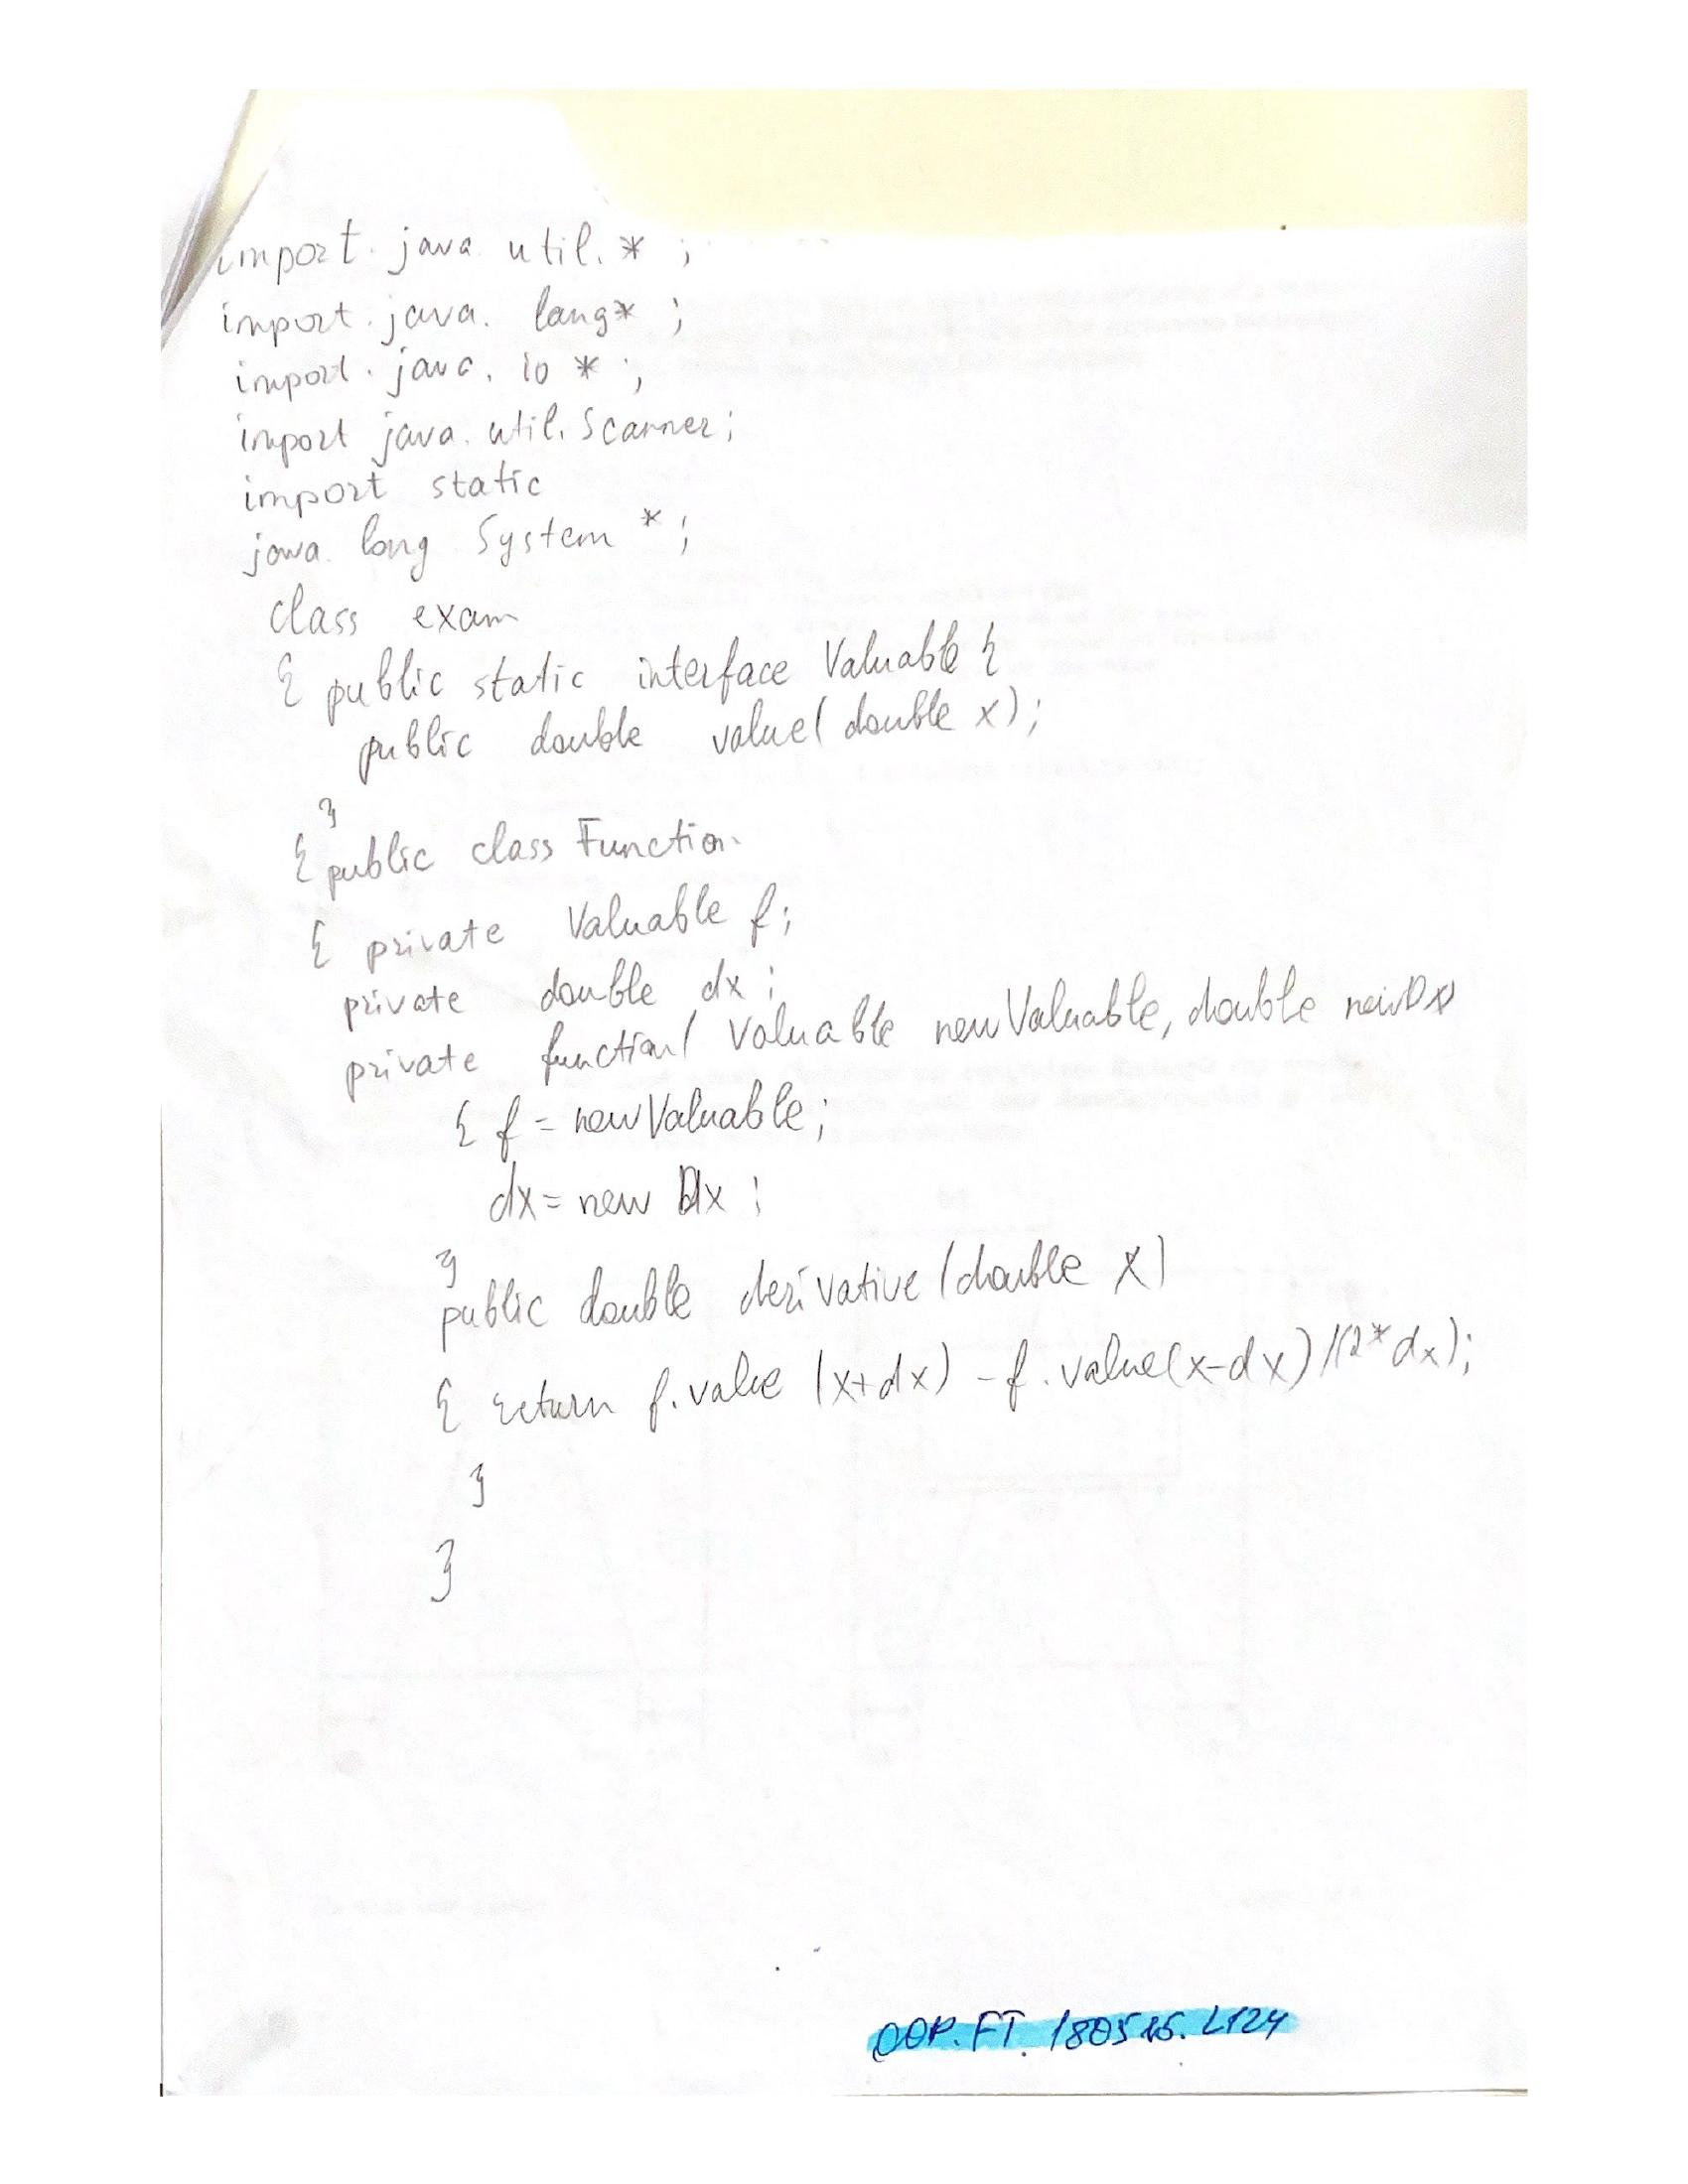 import java util. * ;
import. java. lang* ;
import. java. io * ;
import java. util. Scanner;
import static
java. lang System * ;
class exam
{ public static interface Valuable {
public double value( double x);
}
{ public class Function
{ private Valuable f;
private double dx ;
private function( Valuable newValuable, double newDx)
{ f = newValuable;
dx = new Dx ;
}
public double derivative (double x)
{ return f.value (x+dx) - f.value(x-dx)/(2*dx);
}
}
OOP.FT. 180515. L124